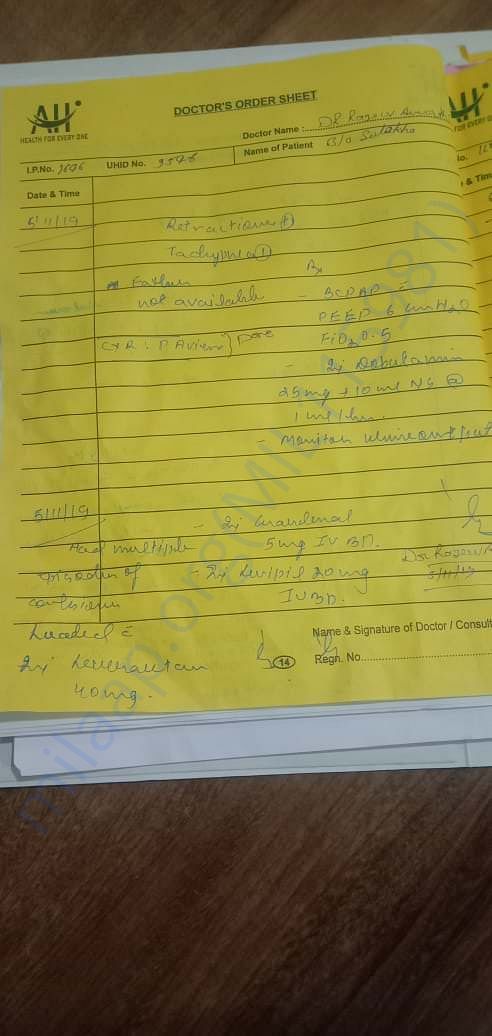 AH
HEALTH FOR EVERY ONE
DOCTOR'S ORDER SHEET
Doctor Name : DR Rajeev
I.P.No. 2696 UHID No. 9546 Name of Patient B/o Sulekha
Date & Time
5/11/19 Retractions (+)
Tachypnea (+)
Father
not available - BCPAP c̄
PEEP 6 cm H2O
CXR : FiO2 0.5
- Inj Dobutamin
25mg + 10ml NS @
1ml/hr.
- Monitor urine output
5/11/19 - Inj Gardenal
Had multiple 5mg IV BD.
episodes of - Inj Levipil 20mg
IV BD.
5/11/19
Loaded c̄
Inj
40mg.
Name & Signature of Doctor / Consult
14
Regn. No.
FOR EVERY ONE
& Tim
milaap.org